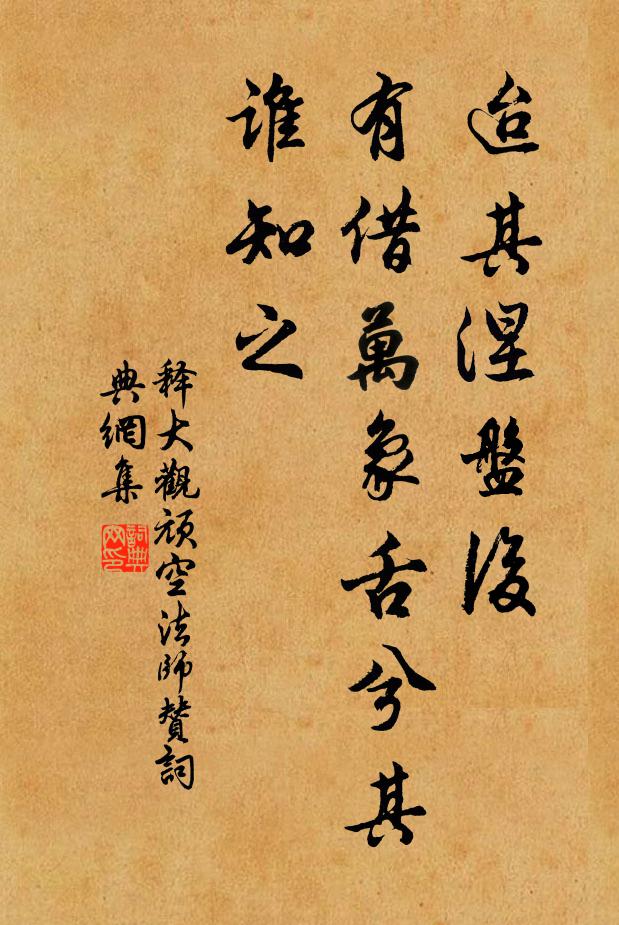 迨其涅盤後
有借萬象舌兮其
誰知之
释大觀頑空法師賛詞
典網集
詞典网印